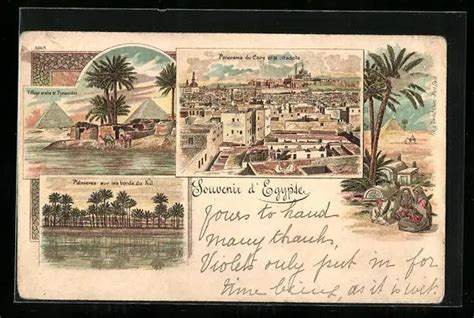 Village arabe et Pyramides
Panorama du Caire et la citadelle
Palmieres sur les bords du Nil
Souvenir d'Egypte.
Yours to hand
many thanks,
Violets only put in for
time being, as it is wet.